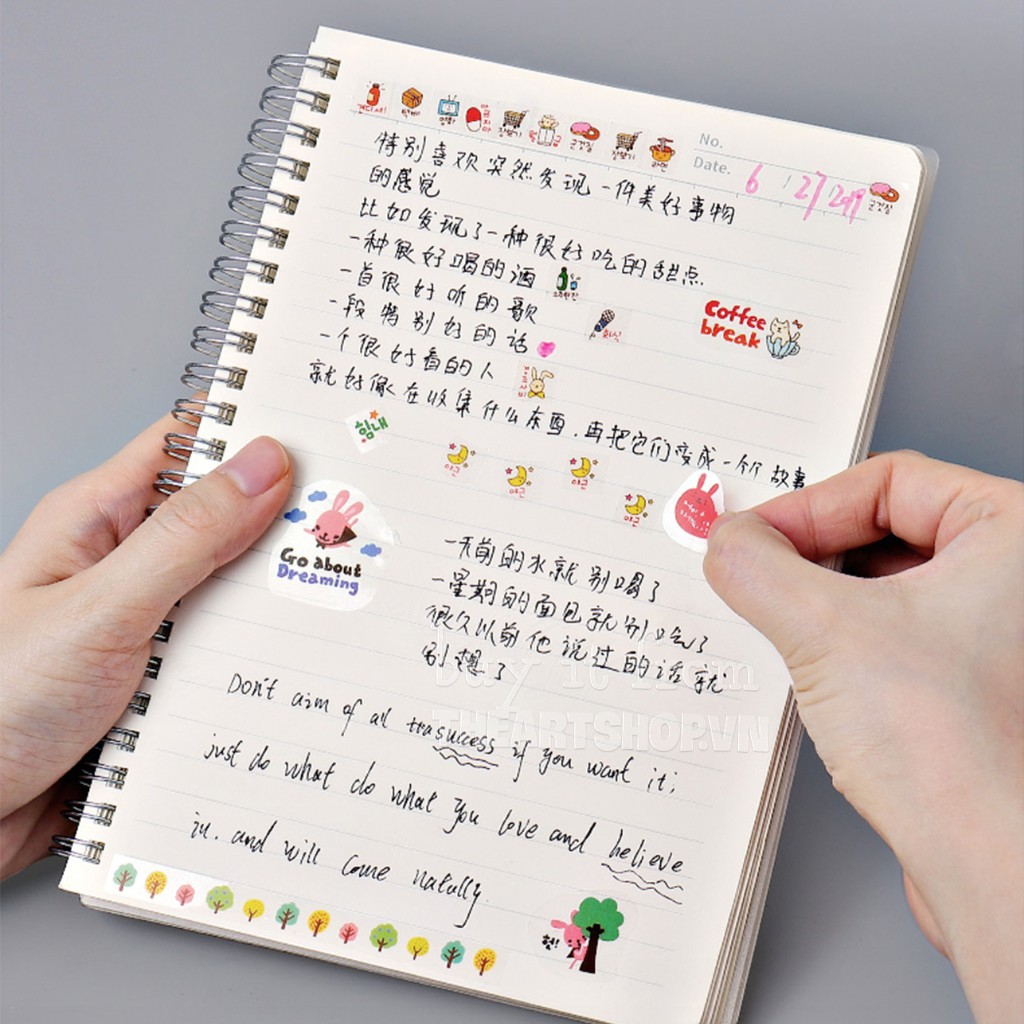 No.
Date. 6 27 2019
特别喜欢突然发现一件美好事物
的感觉
比如发现了一种很好吃的甜点
一种很好喝的酒
一首很好听的歌
一段特别好的话
一个很好看的人
就好像在收集什么东西.再把它们变成一个个故事
Coffee
break
힘내
야근 야근 야근 야근
Go about
Dreaming
一天前的水就别喝了
一星期的面包就别吃了
很久以前他说过的话就
别想了
buy it from
THEARTSHOP.VN
Don't aim of all success if you want it;
just do what do what you love and believe
in. and will come natully.
헛!